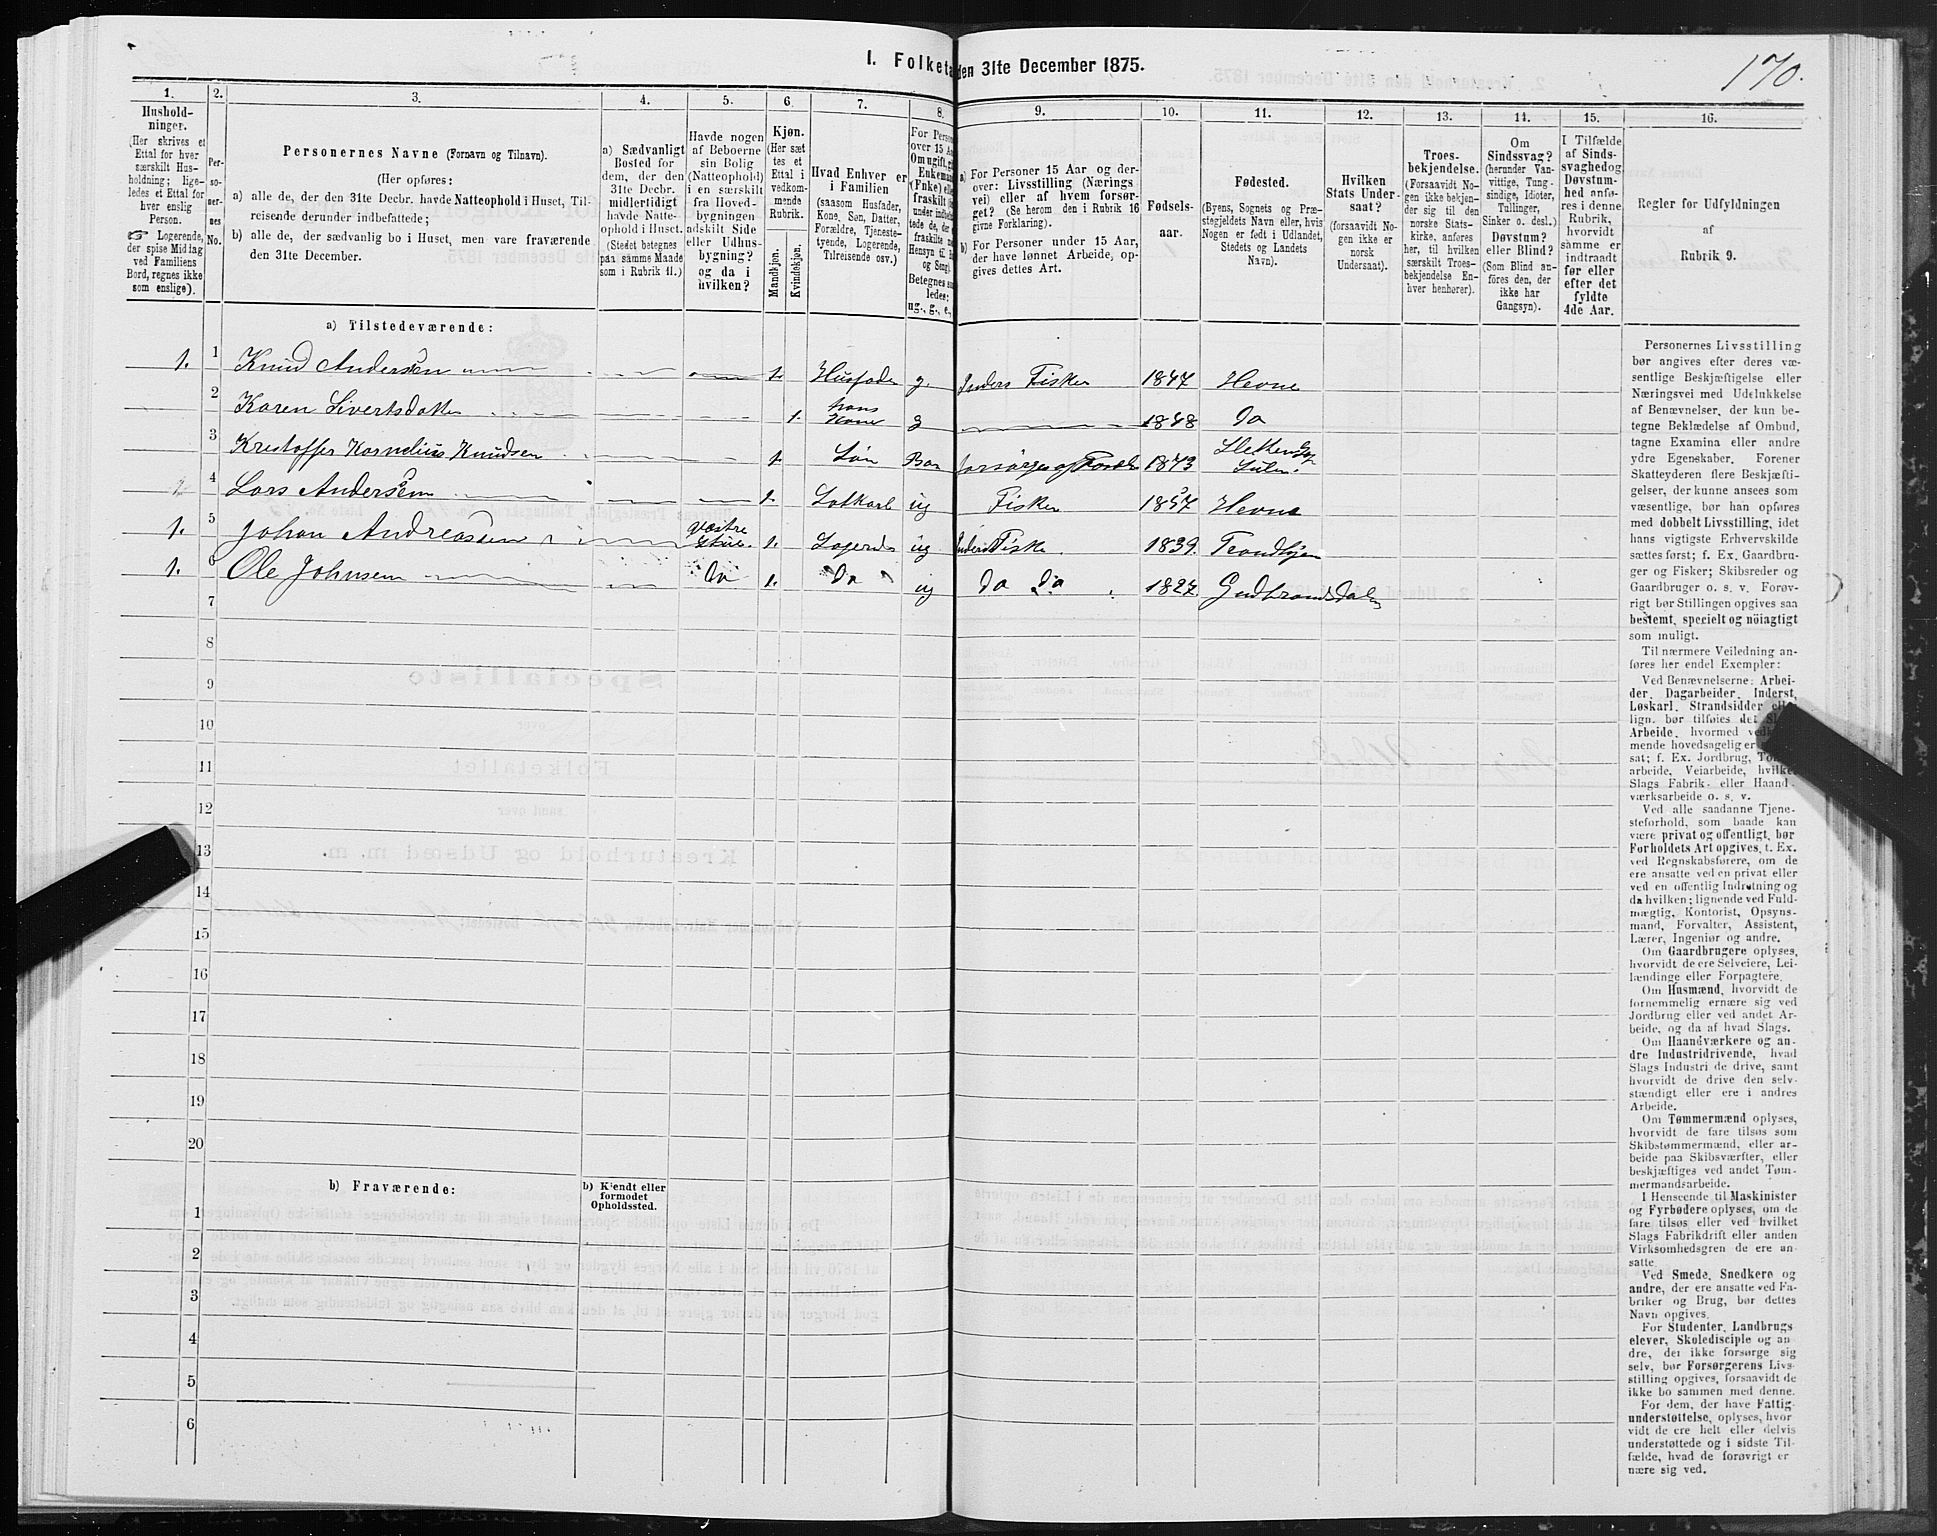 170.
I. Folketa den 31te December 1875.
1. 2. 3. 4. 5. 6. 7. 8. 9. 10. 11. 12. 13. 14. 15. 16.
Hushold-
ninger.
(Her skrives et
Ettal for hver
særskilt Hus-
holdning; lige-
ledes et Ettal for
hver enslig
Person.
Logerende,
der spise Middag
ved Familiens
Bord, regnes ikke
som enslige).
Per-
so-
ner-
nes
No.
Personernes Navne (Fornavn og Tilnavn).
(Her opføres:
a) alle de, der den 31te Decbr. havde Natteophold i Huset, Til-
reisende derunder indbefattede;
b) alle de, der sædvanlig bo i Huset, men vare fraværende
den 31te December.
a) Sædvanligt
Bosted for
dem, der den
31te Decbr.
midlertidigt
havde Natte-
ophold i Huset.
(Stedet betegnes
paa samme Maade
som i Rubrik 11.)
Havde nogen
af Beboerne
sin Bolig
(Natteophold)
i en særskilt
fra Hoved-
bygningen
adskilt Side
eller Udhus-
bygning?
og da i
hvilken?
Kjøn.
(Her sæt
tes et
Ettal i
vedkom-
mende
Rubrik.
Mandkjøn.
Kvindekjøn.
Hvad Enhver er
i Familien
(saasom Husfader,
Kone, Søn, Datter,
Forældre, Tjeneste-
tyende, Logerende,
Tilreisende osv.)
For Person
over 15 Aa
Om ugift, gi
Enkemand
(Enke) elle
fraskilt
Betegnes saa
ledes:
ug., g., e.,
a) For Personer 15 Aar og der-
over: Livsstilling (Nærings
vei) eller af hvem forsør-
get? (Se herom den i Rubrik 16
givne Forklaring).
b) For Personer under 15 Aar,
der have lønnet Arbeide, op-
gives dettes Art.
Fødsels-
aar.
Fødested.
(Byens, Sognets og Præ-
stegjeldets Navn eller, hvis
Nogen er født i Udlandet,
Stedets og Landets
Navn).
Hvilken
Stats Under-
saat?
(forsaavidt No-
gen ikke er
norsk
Undersaat).
Troes-
bekjendelse.
(Forsaavidt No-
gen ikke bekjen-
der sig til den
norske Stats-
kirke, anføres
her, til hvilken
særskilt Troes-
bekjendelse En-
hver henhører).
Om
Sindssvag?
(herunder Van-
vittige, Tung-
sindige, Idioter,
Tullinger,
Sinker o. desl.)
Døvstum?
eller Blind?
(Som Blind an-
føres den, der
ikke har
Gangsyn).
I Tilfælde
af Sinds-
svaghed og
Døvstum-
hed anfø-
res i denne
Rubrik,
hvorvidt
samme er
indtraadt
før eller
efter det
fyldte
4de Aar.
Regler for Udfyldningen
af
Rubrik 9.
a) Tilstedeværende:
1. 1 Knud Andersen 1. Husfader g. Inders Fisker 1847 Hevne
2 Karen Sivertsdatter 1. hans Kone g 1848 do
3 Kristoffer Kornelius Knudsen 1. Søn Barn 1873
4 Lars Andersen 1. Lotkarl ug Fisker 1857 Hevne
1. 5 Johan Andreassen 1. ug 1839.
1. 6 Ole Johnsen do 1. do ug do do 1827. Gudbrandsdalen
7
8
9
10
11
12
13
14
15
16
17
18
19
20
b) Fraværende:
b) Kjendt eller
formodet
Opholdssted.
1
2
3
4
5
6
Personernes Livsstilling
bør angives efter deres væ-
sentlige Beskjæftigelse eller
Næringsvei med Udelukkelse
af Benævnelser, der kun be-
tegne Beklædelse af Ombud,
tagne Examina eller andre
ydre Egenskaber. Forener
Skatteyderen flere Beskjæfti-
gelser, der kunne ansees som
væsentlige, bør han opføres
med dobbelt Livsstilling, idet
hans vigtigste Erhvervskilde
sættes først; f. Ex. Gaardbru-
ger og Fisker; Skibsreder og
Gaardbruger o. s. v. Forøv-
rigt bør Stillingen opgives saa
bestemt, specielt og nöiagtigt
som muligt.
Til nærmere Veiledning an-
føres her endel Exempler:
Ved Benævnelserne: Arbei-
der, Dagarbeider, Inderst,
Løskarl, Strandsidder eller
lign. bør tilføies det Sl
Arbeide, hvormed ved
mende hovedsagelig er
sat; f. Ex. Jordbrug, To
arbeide, Veiarbeide, hvilke
Slags Fabrik- eller Haand-
værksarbeide o. s. v.
Ved alle saadanne Tjene-
steforhold, som baade kan
være privat og offentligt, bør
Forholdets Art opgives, t. Ex.
ved Regnskabsførere, om de
ere ansatte ved en privat eller
ved en offentlig Indretning og
da hvilken; lignende ved Fuld-
mægtig, Kontorist, Opsyns-
mand, Forvalter, Assistent,
Lærer, Ingeniør og andre.
Om Gaardbrugere oplyses,
hvorvidt de ere Selveiere, Lei-
lændinge eller Forpagtere.
Om Husmænd, hvorvidt de
fornemmelig ernære sig ved
Jordbrug eller ved andet Ar-
beide, og da af hvad Slags.
Om Haandværkere og an-
dre Industridrivende, hvad
Slags Industri de drive, samt
hvorvidt de drive den selv-
stændigt eller ere i andres
Arbeide.
Om Tømmermænd oplyses,
hvorvidt de fare tilsøs som
Skibstømmermænd, eller ar-
beide paa Skibsværfter, eller
beskjæftiges ved andet Tøm-
mermandsarbeide.
I Henseende til Maskinister
og Fyrbødere oplyses, om de
fare tilsøs eller ved hvilket
Slags Fabrikdrift eller anden
Virksomhedsgren de ere an-
satte.
Ved Smede, Snedkere og
andre, der ere ansatte ved Fa-
briker og Brug, bør dettes
Navn opgives.
For Studenter, Landbrugs
elever, Skoledisciple og an
dre, der ikke forsørge sig
selv, bør Forsørgerens Livs-
stilling opgives, forsaavidt de
ikke bo sammen med denne.
For dem, der have Fattig-
understøttelse, oplyses, hvor
vidt de ere helt eller delvis
understøttede og i sidste Til-
fælde, hvad de forøvrigt er
nære sig ved.